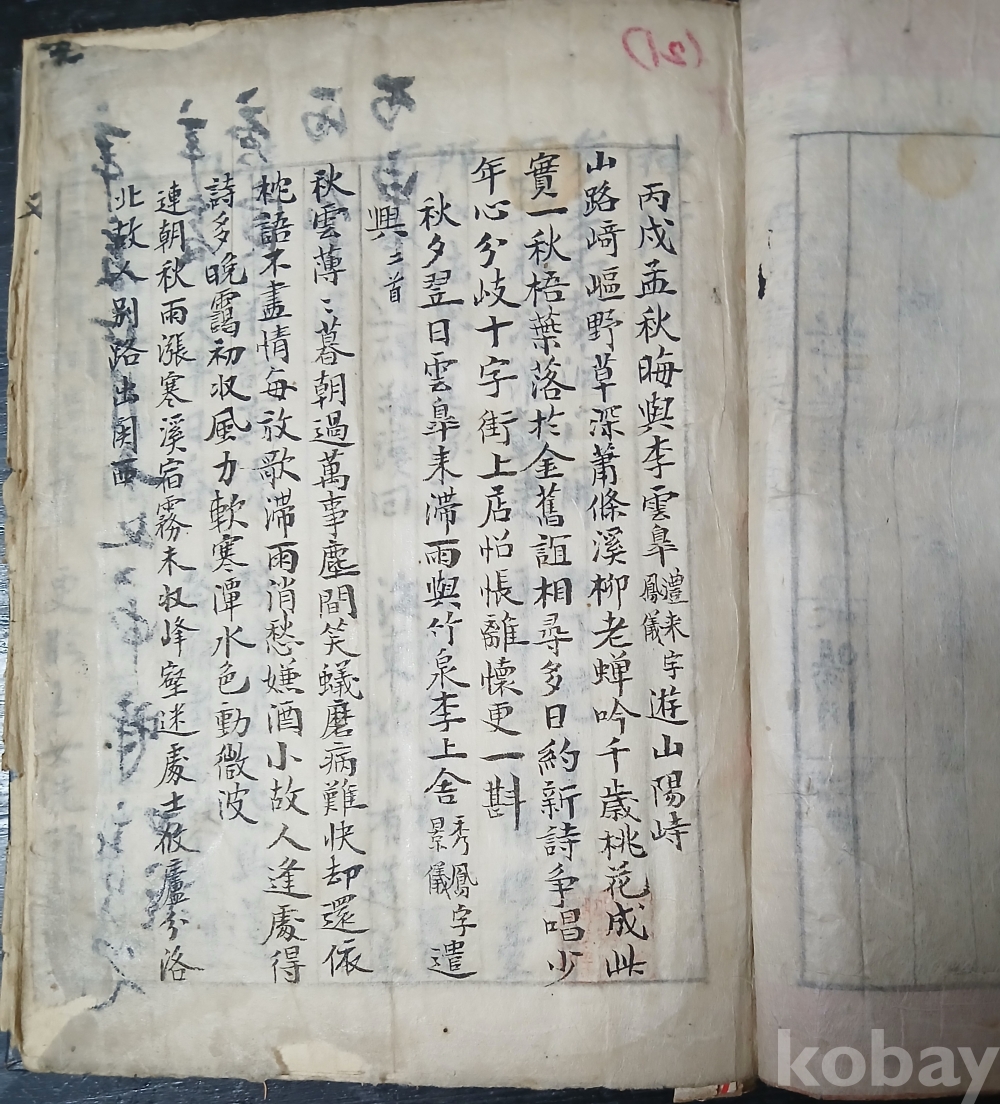 丙戌孟秋晦與李雲皐禮来字鳳儀遊山陽峙
山路崎嶇野草深蕭條溪柳老蟬吟千歲桃花成此
實一秋梧葉落於金舊誼相尋多日約新詩爭唱少
年心分岐十字街上居怊悵離懷更一斟
秋夕翌日雲皐来滯雨與竹泉李上舍秀鳳字景儀遣
興二首
秋雲薄〻暮朝過萬事塵間笑蟻磨病難快却還依
枕語不盡情每放歌滯雨消愁嫌酒小故人逢處得
詩多晚靄初收風力軟寒潭水色動微波
連朝秋雨漲寒溪宿霧未收峰壑迷處士攸廬分洛
北故人別路出関西
(21)
kobay